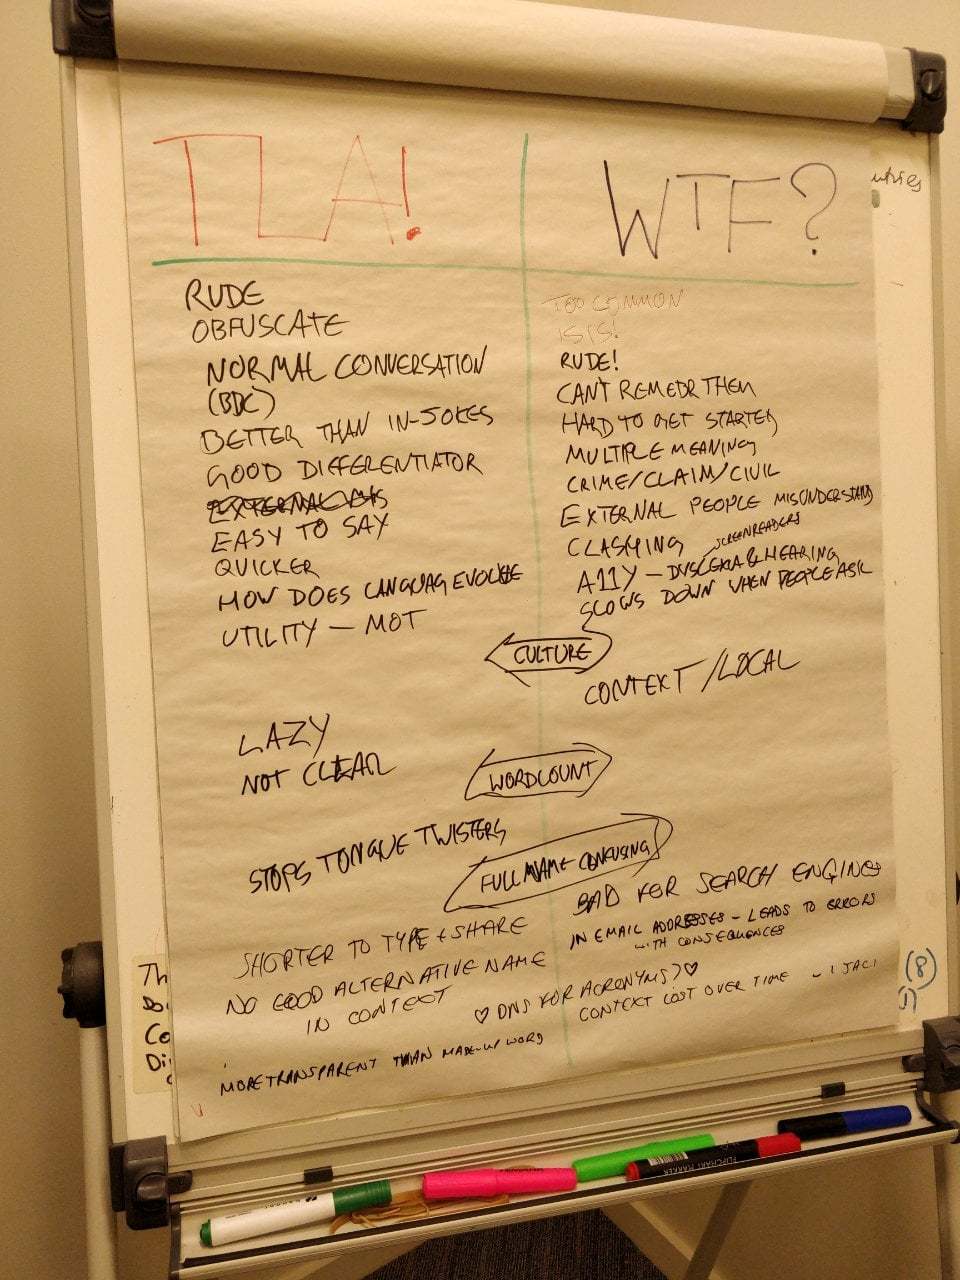 TLA!
RUDE
OBFUSCATE
NORMAL CONVERSATION
(BDC)
BETTER THAN IN-JOKES
GOOD DIFFERENTIATOR
EASY TO SAY
QUICKER
HOW DOES LANGUAG EVOLVE
UTILITY — MOT
LAZY
NOT CLEAR
STOPS TONGUE TWISTERS
SHORTER TO TYPE + SHARE
NO GOOD ALTERNATIVE NAME
IN CONTEXT
MORE TRANSPARENT THAN MADE-UP WORD
CULTURE
WORDCOUNT
FULL NAME CONFUSING
♡ DNS FOR ACRONYMS? ♡
WTF?
TOO COMMON
ISIS!
RUDE!
CANT REMEBR THEM
HARD TO GET STARTED
MULTIPLE MEANING
CRIME/CLAIM/CIVIL
EXTERNAL PEOPLE MISUNDERSTAND
CLASHING
SCREENREADERS
A11Y — DYSLEXIA & HEARING
SLOWS DOWN WHEN PEOPLE ASK
CONTEXT / LOCAL
BAD FOR SEARCH ENGINES
IN EMAIL ADDRESSES - LEADS TO ERRORS
WITH CONSEQUENCES
CONTEXT LOST OVER TIME
Th
Co
Di
(8)
FLIPCHART MARKER